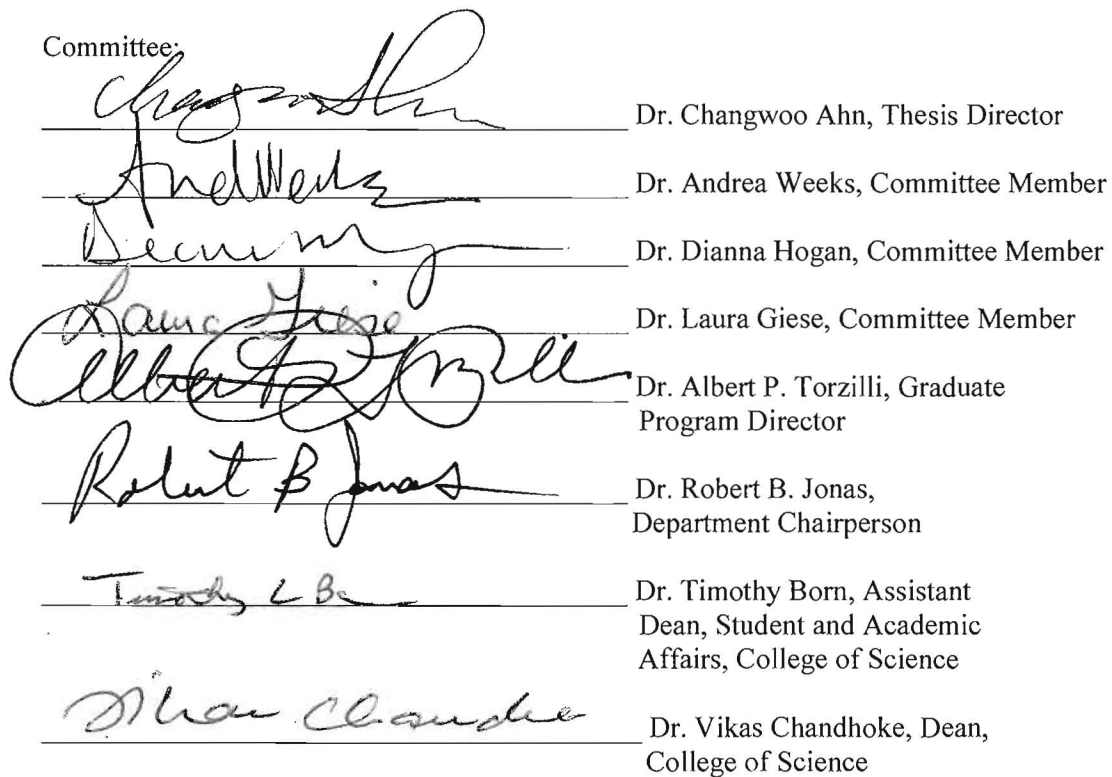 Committee:
Dr. Changwoo Ahn, Thesis Director
Dr. Andrea Weeks, Committee Member
Dr. Dianna Hogan, Committee Member
Laura Giese
Dr. Laura Giese, Committee Member
Dr. Albert P. Torzilli, Graduate
Program Director
Robert B Jonas
Dr. Robert B. Jonas,
Department Chairperson
Timothy L B
Dr. Timothy Born, Assistant
Dean, Student and Academic
Affairs, College of Science
Dr. Vikas Chandhoke, Dean,
College of Science